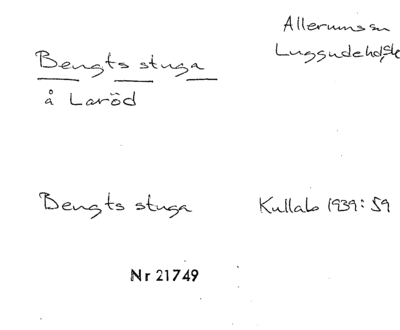 Allerums sn
Luggude hd, Sk
Bengts stuga
å Laröd
Bengts stuga Kullabo 1939:59
Nr 21749